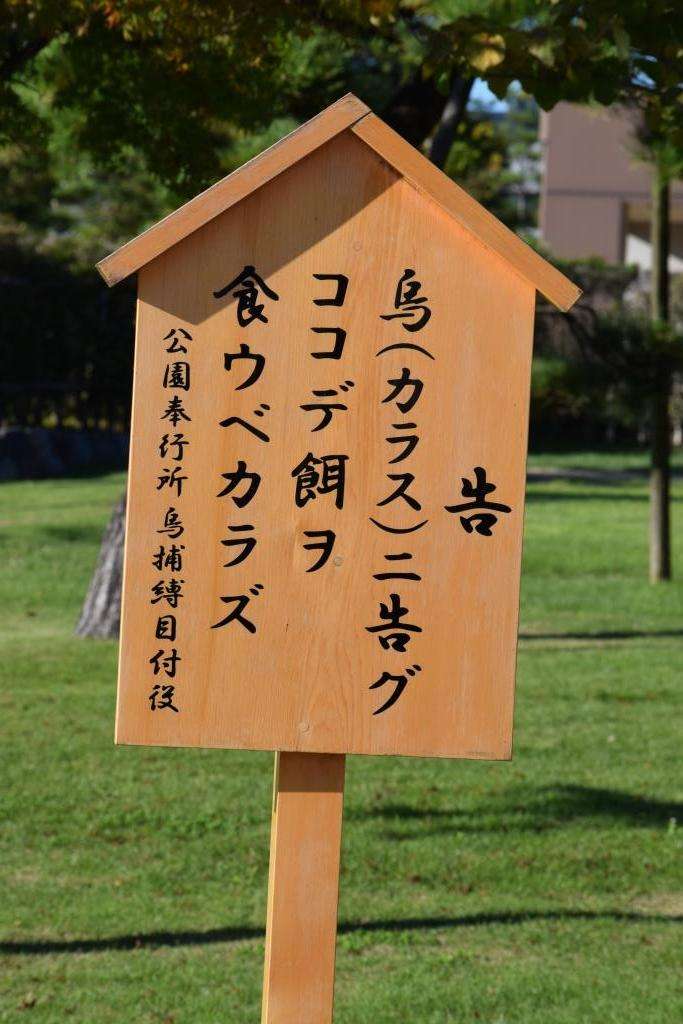 告
烏(カラス)ニ告グ
ココデ餌ヲ
食ウベカラズ
公園奉行所 烏捕縛目付役